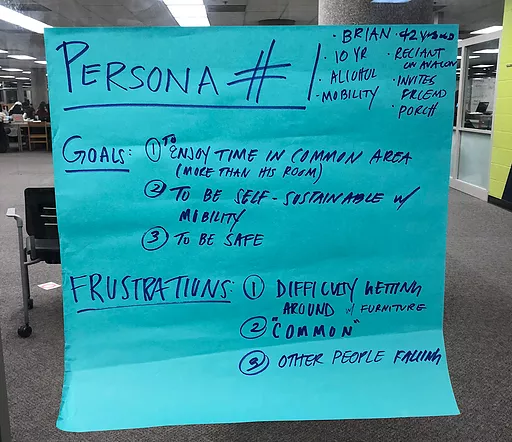 PERSONA #1
· BRIAN
· 10 YR
· ALCOHOL
· MOBILITY
· 42 YRS OLD
· RELIANT
ON AVALON
· INVITES
FRIEND
· PORCH
GOALS: ① TO ENJOY TIME IN COMMON AREA
(MORE THAN HIS ROOM)
② TO BE SELF-SUSTAINABLE W/
MOBILITY
③ TO BE SAFE
FRUSTRATIONS: ① DIFFICULTY GETTING
AROUND W/ FURNITURE
② "COMMON"
③ OTHER PEOPLE FALLING